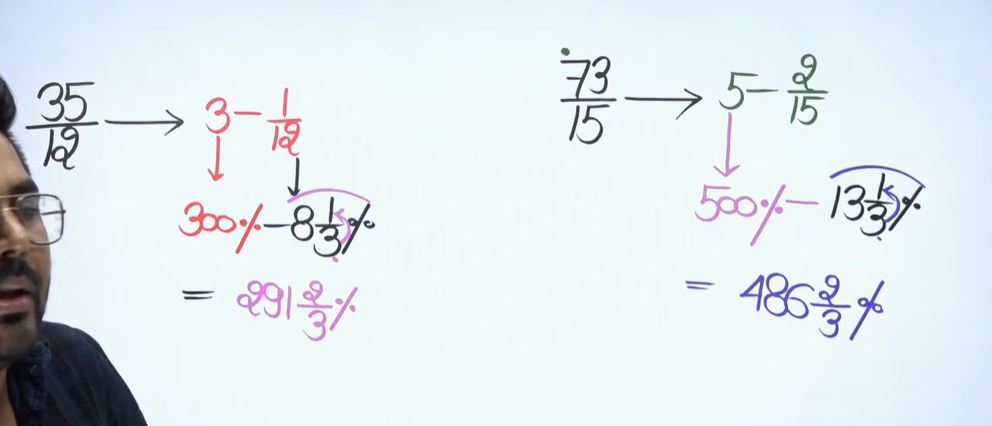 35/12 → 3 - 1/12
300% - 8 1/3 %
= 291 2/3 %
73/15 → 5 - 2/15
500% - 13 1/3 %
= 486 2/3 %